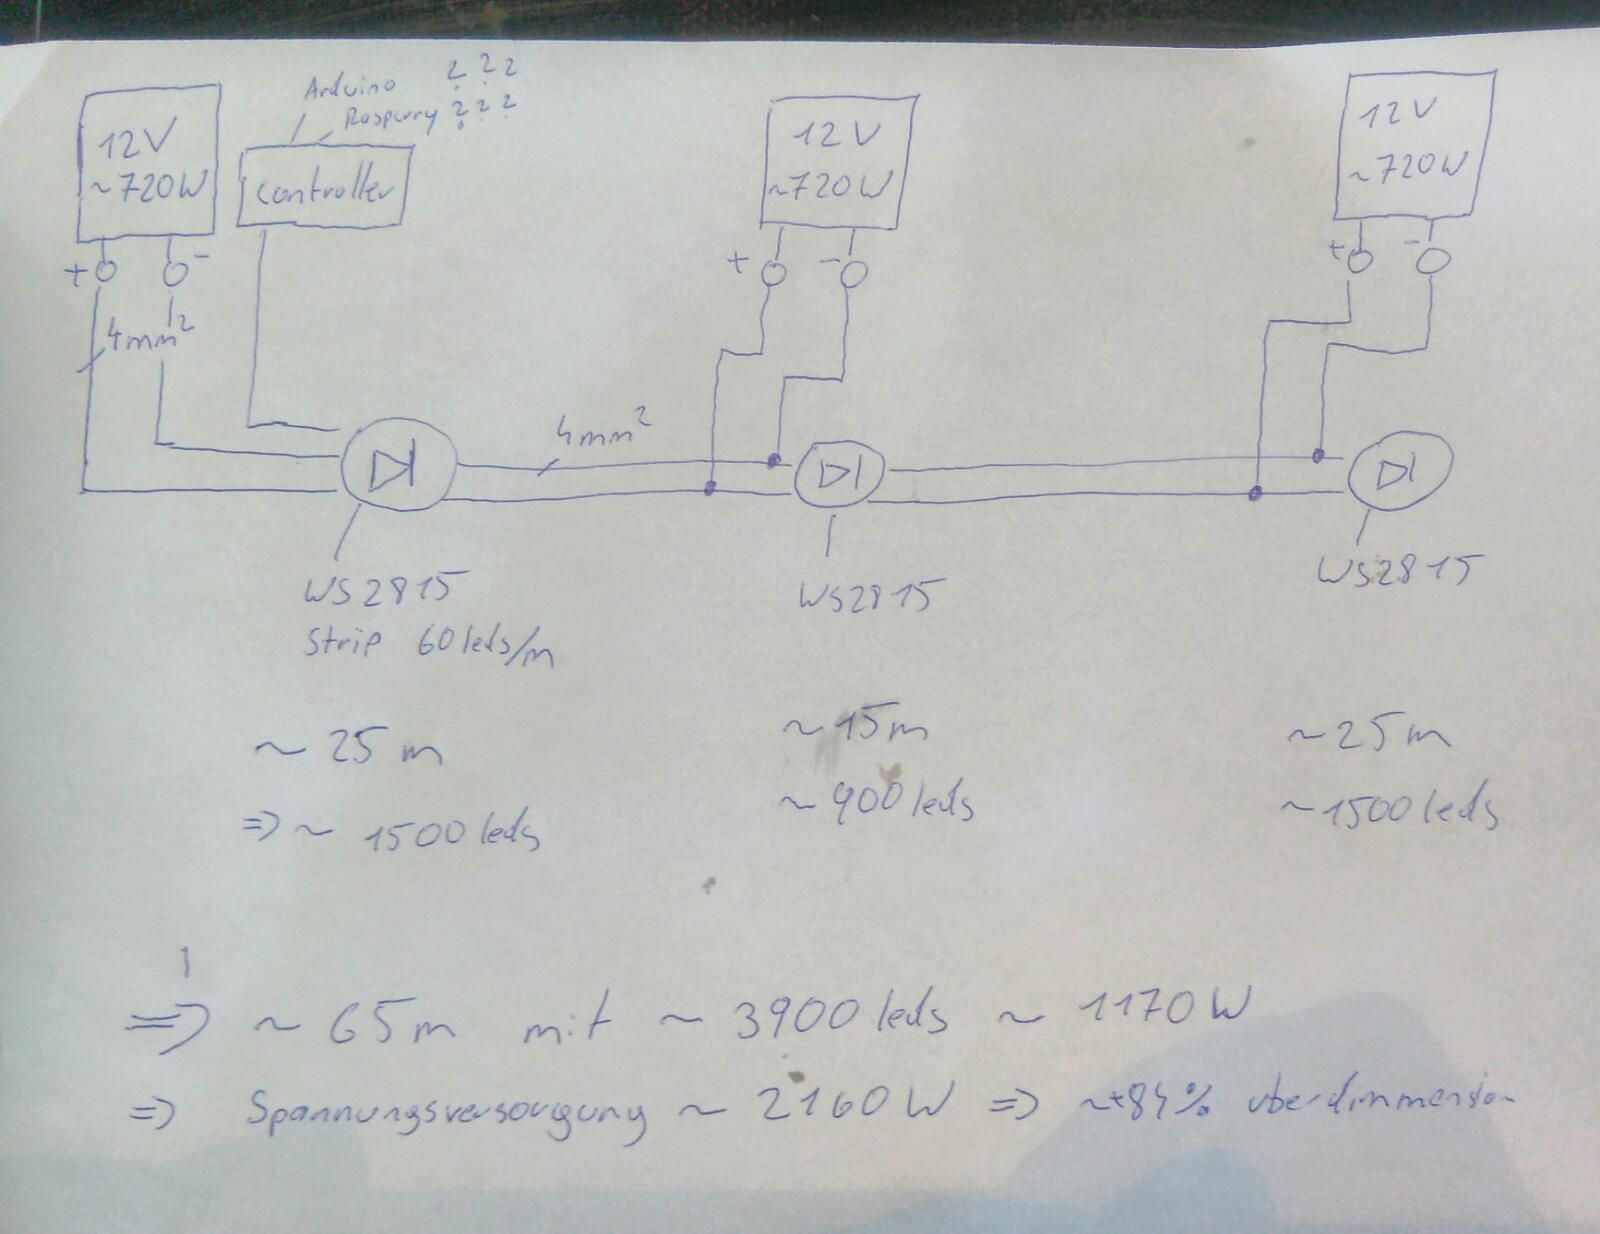 Arduino ???
Raspurry ???
12V
~720W
controller
12V
~720W
12V
~720W
+ -
+ -
+ -
4mm²
4mm²
WS2815
Strip 60leds/m
WS2815
WS2815
~ 25m
~ 15m
~ 25m
=> ~ 1500 leds
~ 900 leds
~ 1500 leds
=> ~ 65m mit ~ 3900 leds ~ 1170W
=> Spannungsversorgung ~ 2160W => ~+84% uberdimmension